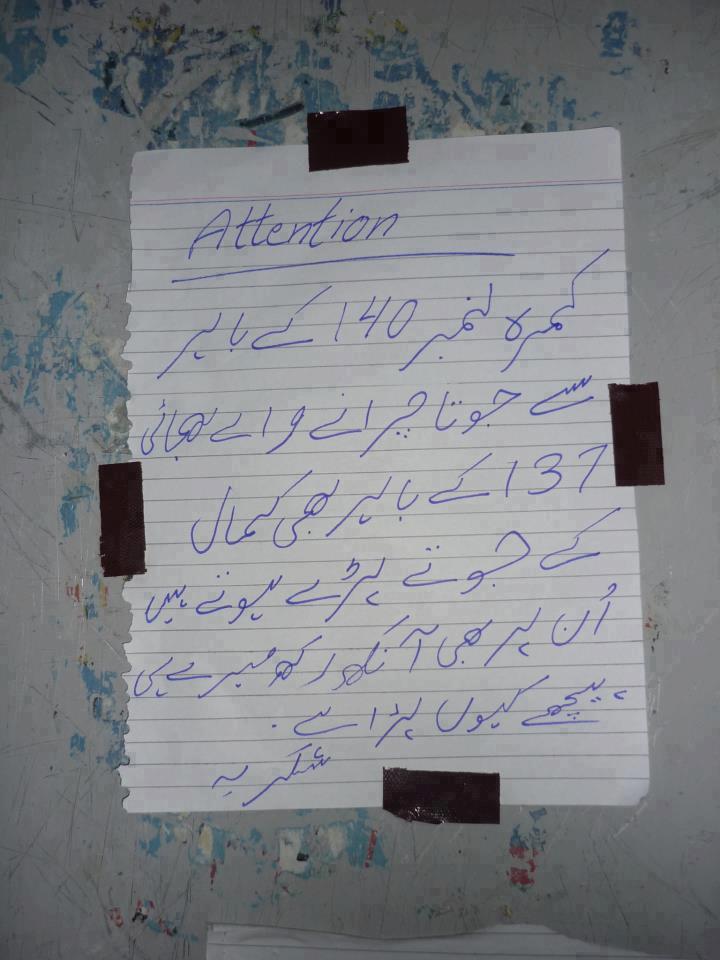 Attention
کمرہ نمبر 140 کے باہر
سے جوتا چرانے والے بھائی
137 کے باہر بھی کمال
کے جوتے پڑے ہوتے ہیں
اُن پر بھی آنکھ رکھ میرے ہی
پیچھے کیوں پڑا ہے۔
شکریہ